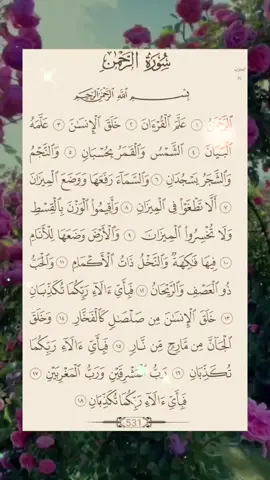 سُورَةُ الرَّحْمَٰنِ
بِسْمِ اللَّهِ الرَّحْمَٰنِ الرَّحِيمِ
الرَّحْمَٰنُ ١ عَلَّمَ الْقُرْءَانَ ٢ خَلَقَ الْإِنسَٰنَ ٣ عَلَّمَهُ
الْبَيَانَ ٤ الشَّمْسُ وَالْقَمَرُ بِحُسْبَانٍ ٥ وَالنَّجْمُ
وَالشَّجَرُ يَسْجُدَانِ ٦ وَالسَّمَاءَ رَفَعَهَا وَوَضَعَ الْمِيزَانَ
٧ أَلَّا تَطْغَوْا فِي الْمِيزَانِ ٨ وَأَقِيمُوا الْوَزْنَ بِالْقِسْطِ
وَلَا تُخْسِرُوا الْمِيزَانَ ٩ وَالْأَرْضَ وَضَعَهَا لِلْأَنَامِ
١٠ فِيهَا فَٰكِهَةٌ وَالنَّخْلُ ذَاتُ الْأَكْمَامِ ١١ وَالْحَبُّ
ذُو الْعَصْفِ وَالرَّيْحَانُ ١٢ فَبِأَيِّ ءَالَاءِ رَبِّكُمَا تُكَذِّبَانِ
١٣ خَلَقَ الْإِنسَٰنَ مِن صَلْصَٰلٍ كَالْفَخَّارِ ١٤ وَخَلَقَ
الْجَانَّ مِن مَّارِجٍ مِّن نَّارٍ ١٥ فَبِأَيِّ ءَالَاءِ رَبِّكُمَا
تُكَذِّبَانِ ١٦ رَبُّ الْمَشْرِقَيْنِ وَرَبُّ الْمَغْرِبَيْنِ ١٧
فَبِأَيِّ ءَالَاءِ رَبِّكُمَا تُكَذِّبَانِ ١٨
531